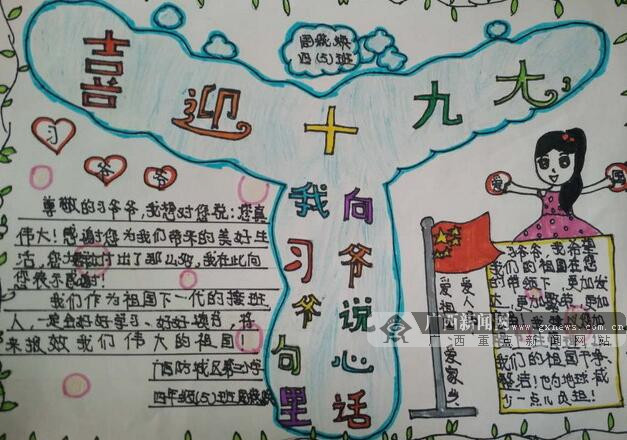 喜迎十九大
四(5)班
习爷爷
我向习爷爷说句心里话
尊敬的习爷爷,我想对您说:您真
伟大!感谢您为我们带来的美好生
活,您付出了那么多,我在此向
您表示感谢!
我们作为祖国下一代的接班
人,一定会好好学习、好好读书,将
来报效我们伟大的祖国!
广西防城区第三小学
四年级(5)班
爱国
爱人
爱祖
爱家乡
习爷爷,我希望
我们的祖国在您
的带领下,更加强
大,更加繁荣,更加
我们的祖国干净、
整洁!也为地球减
少一点心负担!
广西新闻网
www.gxnews.com.cn
广西重点新闻网站